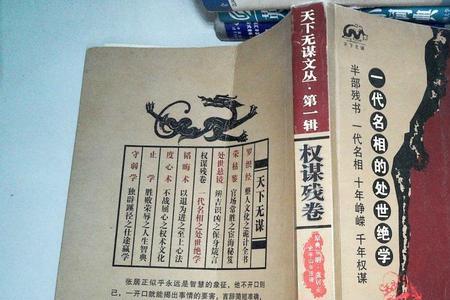 天下无谋
罗织经 整人文化之诡计全书
荣枯鉴 官场常胜之宦海秘笈
处世悬镜 辨吉识凶之保身箴言
权谋残卷 一代名相之处世绝学
韬晦术 以退为进之至上心法
度心术 不战屈心之权术文化
止学 胜败荣辱之人生智典
守弱学 独辟蹊径之仕途赢学
张居正似乎永远是智慧的象征，他不开口则
已，一开口就能揭出事情的要害，言辞简短准确，
天下无谋文丛·第一辑
权谋残卷
一代名相的处世绝学
半部残书 一代名相 十年峥嵘 千年权谋